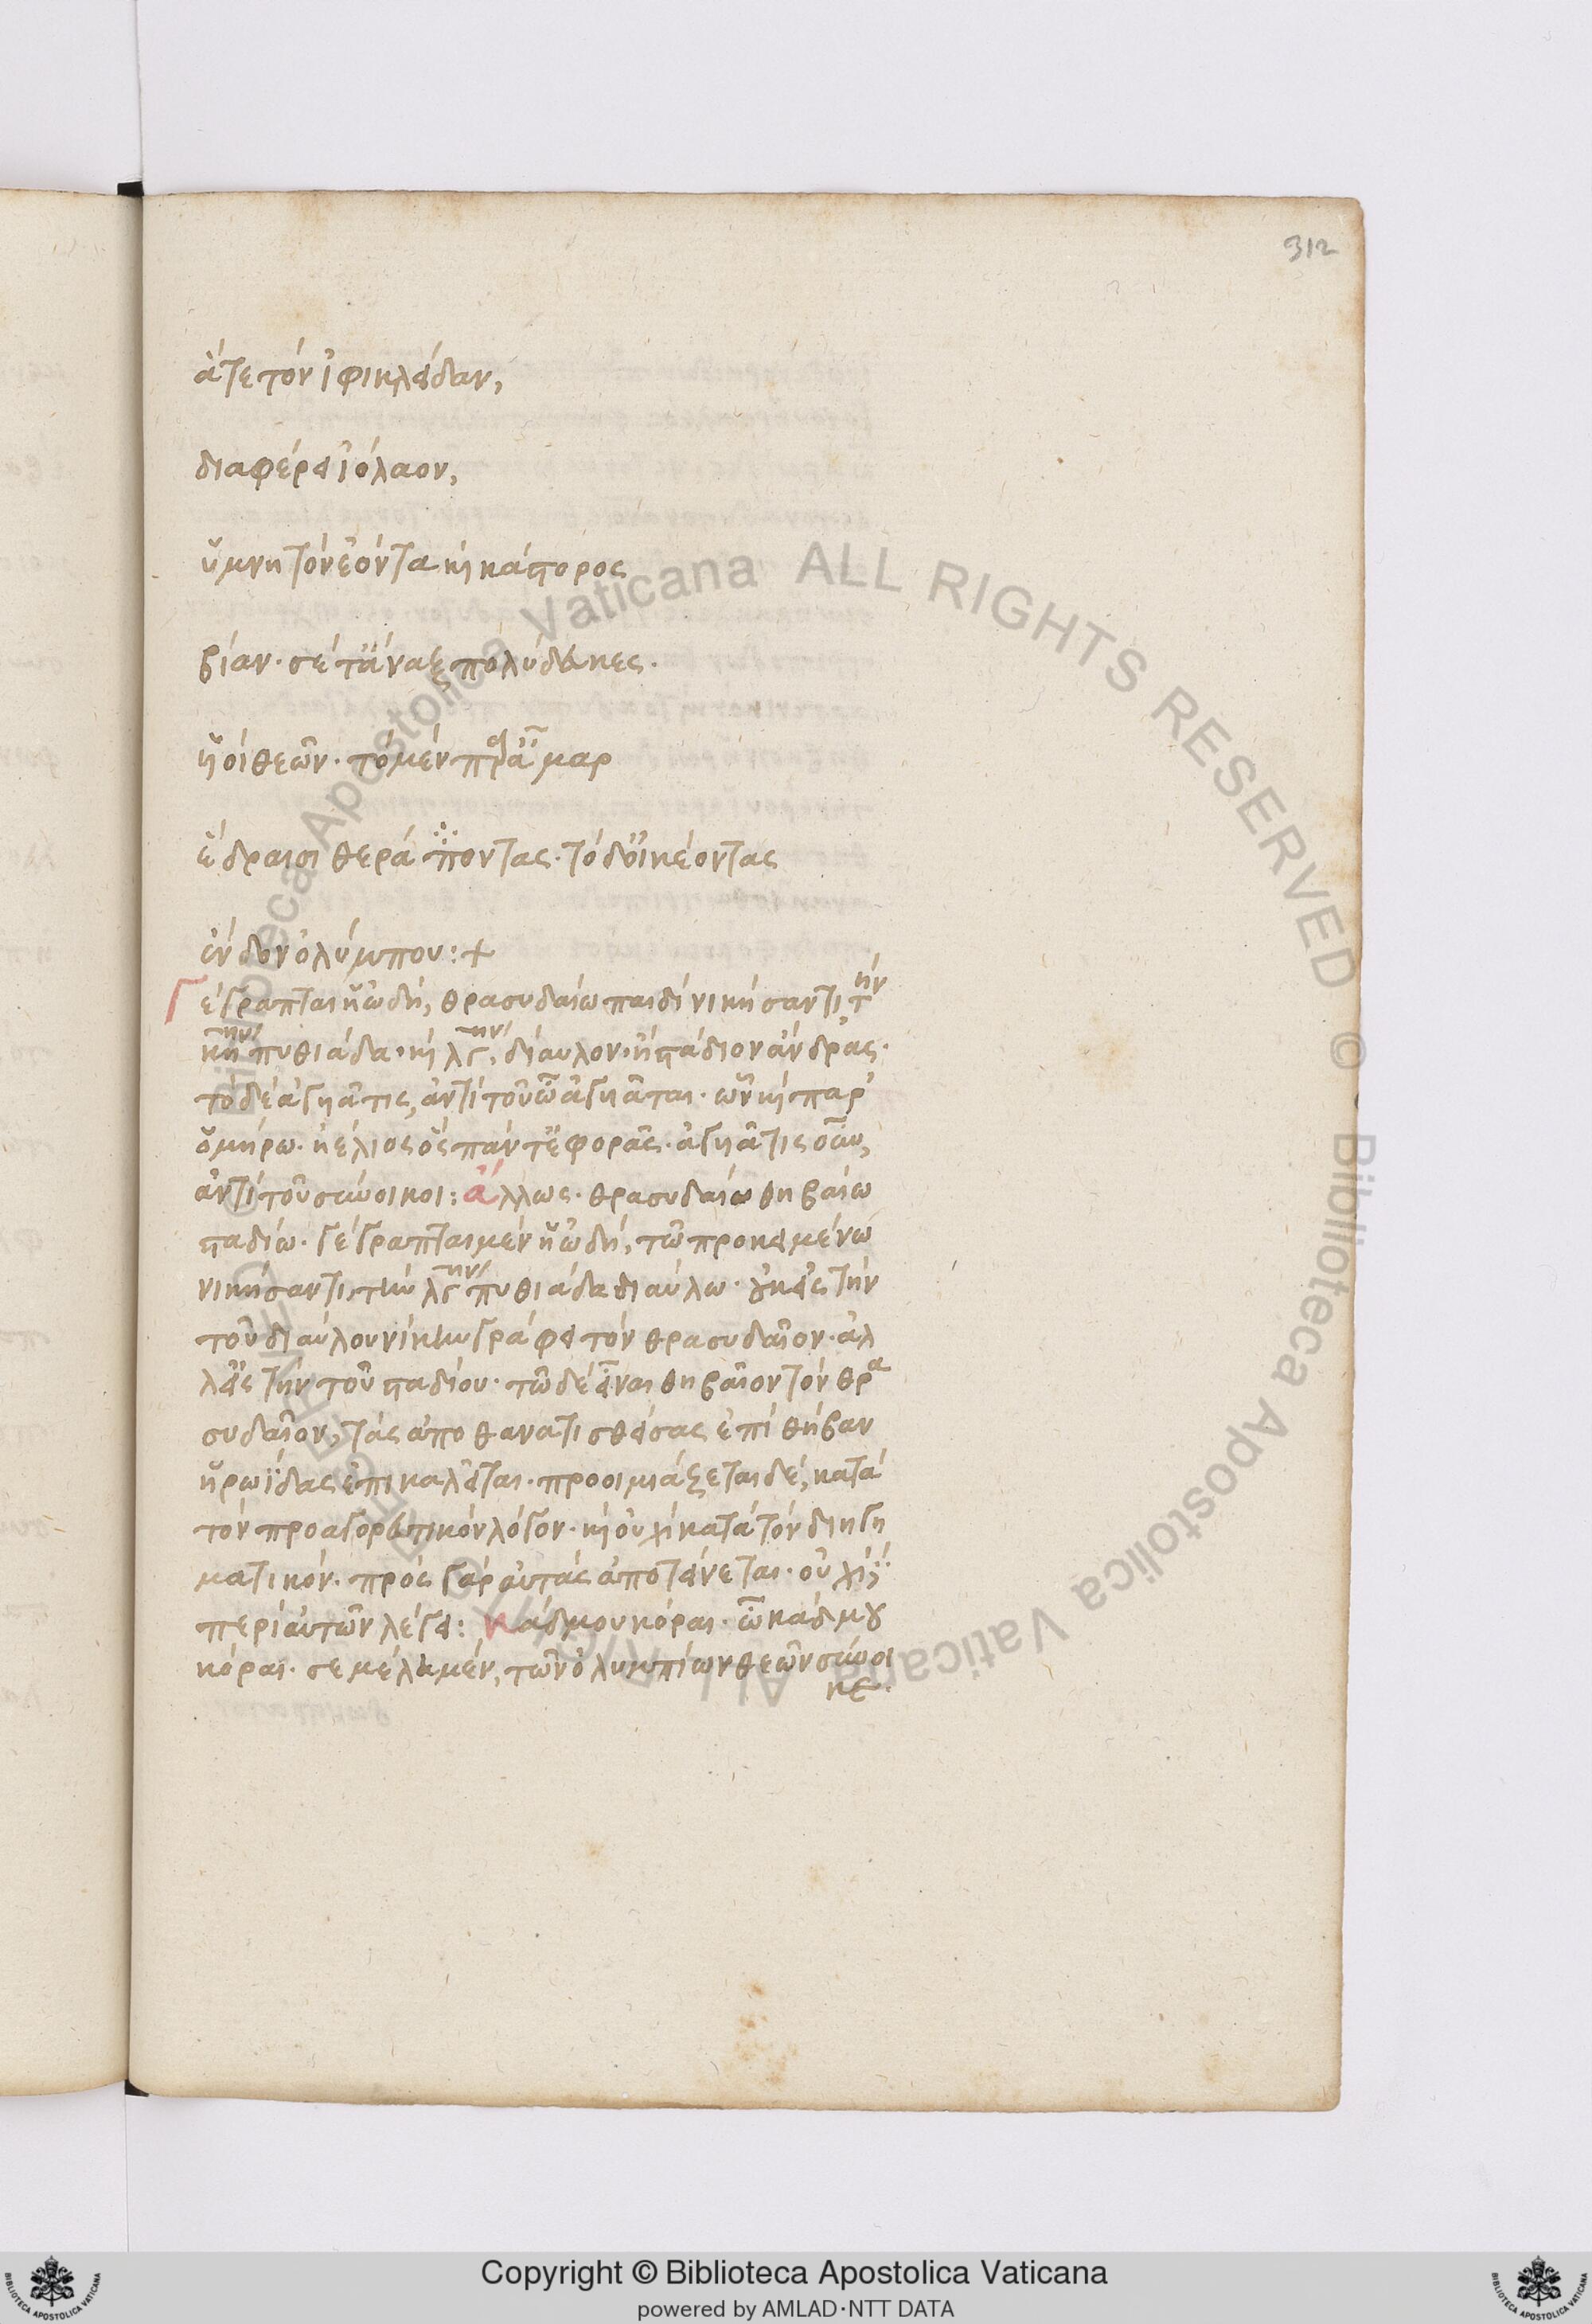 312
ἅτε τὸν ἰφικλείδαν,
διαφέρει ἰόλαον,
ὑμνητὸν ἐόντα κ κάστορος
βίαν· σέ τ' ἄναξ πολύδευκες·
υἱοὶ θεῶν· τὸ μὲν παρ' ἆμαρ
ἕδραισι θεράπνας· τὸ δ' οἰκέοντας
ἔνδον ὀλύμπου:+
Γέγραπται ἡ ὠδὴ, θρασυδαίω παιδὶ νικήσαντι τὴν
κηην πυθιάδα· κ λγην, δίαυλον· ἢ στάδιον ἄνδρας·
τὸ δὲ ἀγυιᾶτις, ἀντὶ τοῦ ὦ ἀγυιᾶται· ὡς κ παρ'
ὁμήρω· ἠέλιος ὃς πάντ' ἐφορᾶς· ἀγυιᾶτις οὖν,
ἀντὶ τοῦ σύνοικοι: ἄλλως· θρασυδαίω θηβαίω
σταδίω· γέγραπται μὲν ἡ ὠδὴ, τῶ προκειμένω
νικήσαντι τὴν λγην πυθιάδα διαύλω· οὐκ εἰς τὴν
τοῦ διαύλου νίκην γράφει τὸν θρασυδαῖον· ἀλ
λ' εἰς τὴν τοῦ σταδίου· τῶ δὲ εἶναι θηβαῖον τὸν θρα
συδαῖον, τὰς ἀποθανατισθείσας ἐπὶ θήβαν
ἡρωΐδας ἐπικαλεῖται· προοιμιάζεται δὲ, κατὰ
τὸν προαγορευτικὸν λόγον· κ οὐχὶ κατὰ τὸν διηγη
ματικόν· πρὸς γὰρ αὐτὰς ἀποτείνεται· οὐχὶ
περὶ αὐτῶν λέγει: κάδμου κόραι· ὦ κάδμου
κόραι· σεμέλη μὲν, τῶν ὀλυμπίων θεῶν σύνοι
κε·
Copyright © Biblioteca Apostolica Vaticana
powered by AMLAD·NTT DATA
© Biblioteca Apostolica Vaticana ALL RIGHTS RESERVED © Biblioteca Apostolica Vaticana ALL RIGHTS RESERVED